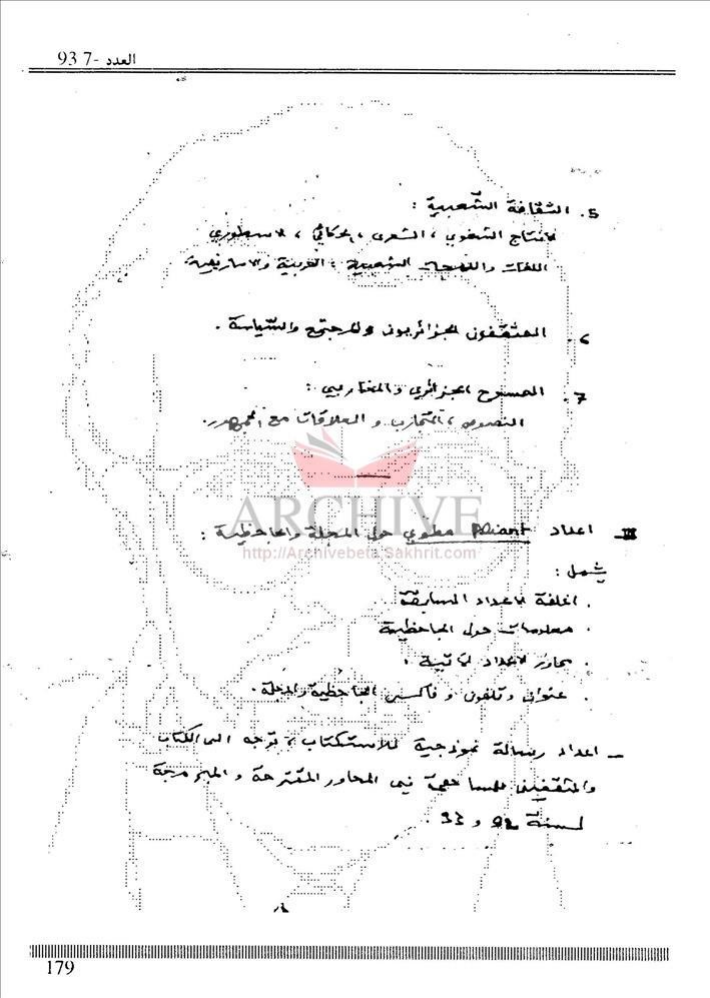 العدد -7 93
5. الثقافة الشعبية :
الانتاج الشفوي ، الشعري ، الحكائي ، الاسطوري
اللغات واللهجات الشعبية : العربية والامازيغية.
6. المثقفون الجزائريون والمجتمع والسياسة .
7. المسرح الجزائري والمغاربي :
النصوص ، التجارب و العلاقات مع الجمهور.
ARCHIVE
http://Archivebeta.Sakhrit.com
III اعداد Pliant مطوي حول المجلة والجاحظية :
يشمل :
. اغلفة الاعداد السابقة
. معلومات حول الجاحظية
. محاور الاعداد الآتية .
. عنوان وتلفون و فاكس الجاحظية والمجلة .
- اعداد رسالة نموذجية للاستكتاب ، توجه الى الكتاب
والمثقفين للمساهمة في المحاور المقترحة و المبرمجة
لسنة 92 و 93 .
179